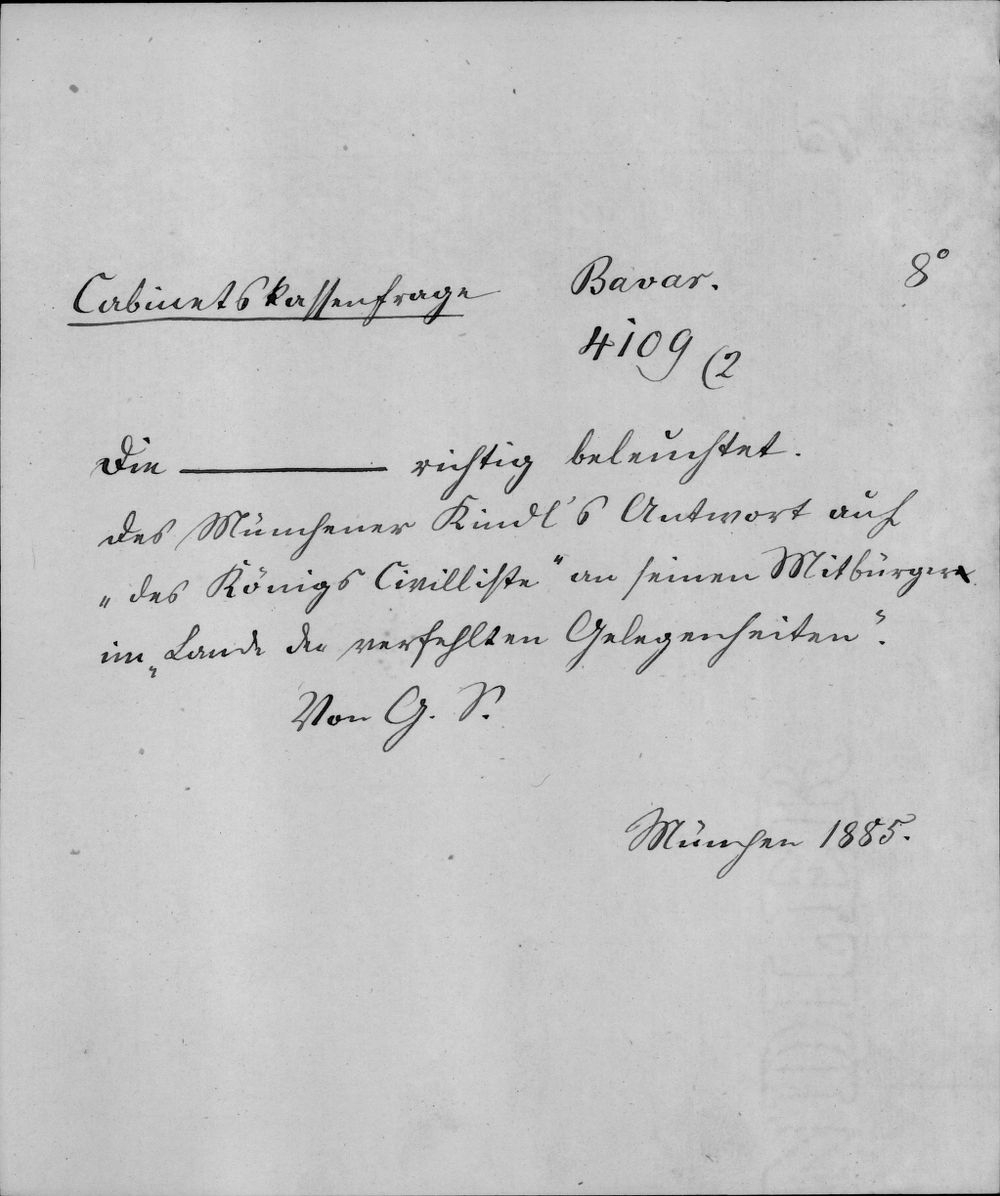 Cabinetskassenfrage Bavar. 8°
4109 (2
Die ——— richtig beleuchtet.
des Münchener Kindl's Antwort auf
„des Königs Civilliste" an seinen Mitbürger
im „Lande der verfehlten Gelegenheiten".
Von G. S.
München 1885.